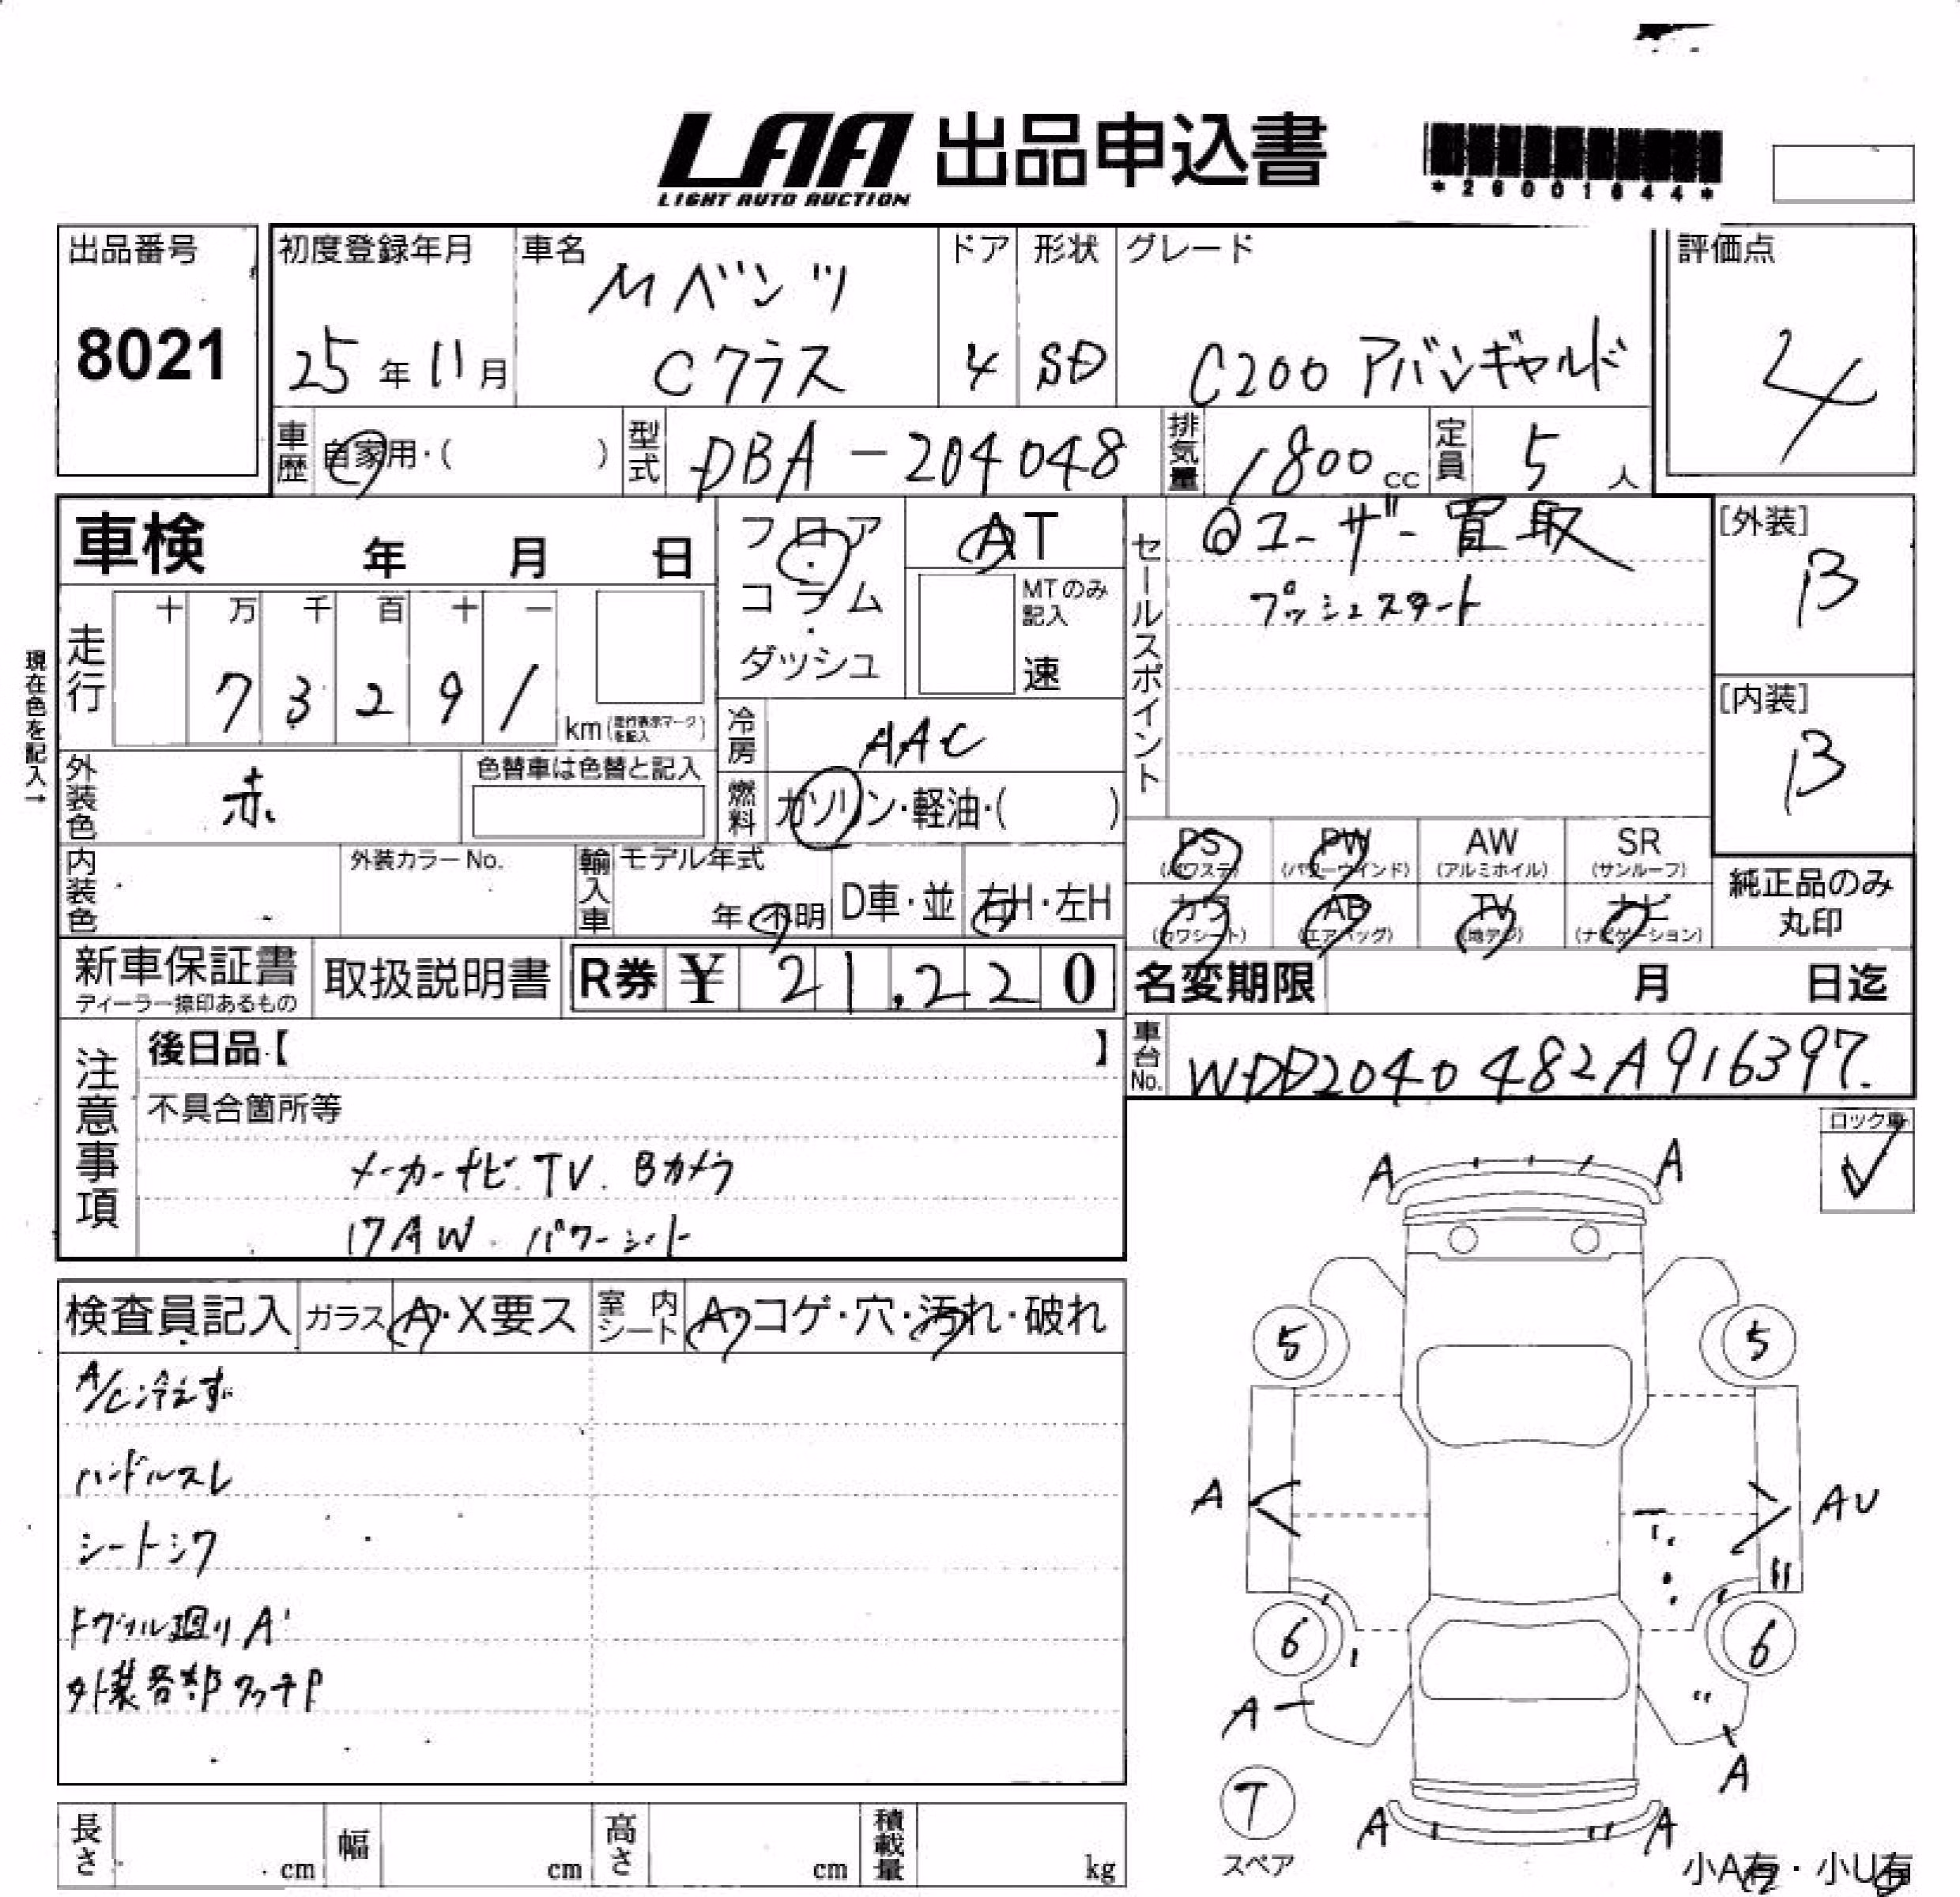 LAA 出品申込書
LIGHT AUTO AUCTION
*26001644*
出品番号
8021
初度登録年月
25年11月
車名
Mベンツ
Cクラス
ドア
4
形状
SD
グレード
C200 アバンギャルド
評価点
4
車歴 自家用・( )
型式 DBA-204048
排気量 1800cc
定員 5人
車検 年 月 日
フロア・コラム・ダッシュ
AT
MTのみ記入
速
セールスポイント
@ユーザー買取
プッシュスタート
[外装]
B
[内装]
B
現在色を記入→
走行
十 万 千 百 十 一
7 3 2 9 1
km(走行表示マークを記入)
冷房 AAC
外装色 赤
色替車は色替と記入
燃料 ガソリン・軽油・( )
内装色
外装カラーNo.
輸入車 モデル年式
年・不明
D車・並
右H・左H
PS (パワステ)
PW (パワーウインド)
AW (アルミホイル)
SR (サンルーフ)
カワ (カワシート)
AB (エアバッグ)
TV (地デジ)
ナビ (ナビゲーション)
純正品のみ
丸印
新車保証書
ディーラー捺印あるもの
取扱説明書
R券 ¥ 21,220
名変期限 月 日迄
車台No. WDD2040482A916397.
注意事項
後日品【 】
不具合箇所等
メーカーナビ. TV. Bカメラ
17AW. パワーシート
ロック車
✓
検査員記入
ガラス A・X要ス
室内シート A・コゲ・穴・汚れ・破れ
A/C冷えず
ハンドルスレ
シートシワ
ドアノブル廻りA
外装各部タッチP
A A
5 5
A AU
6 6
A A
T
スペア
A A
小A有・小U有
長さ cm
幅 cm
高さ cm
積載量 kg